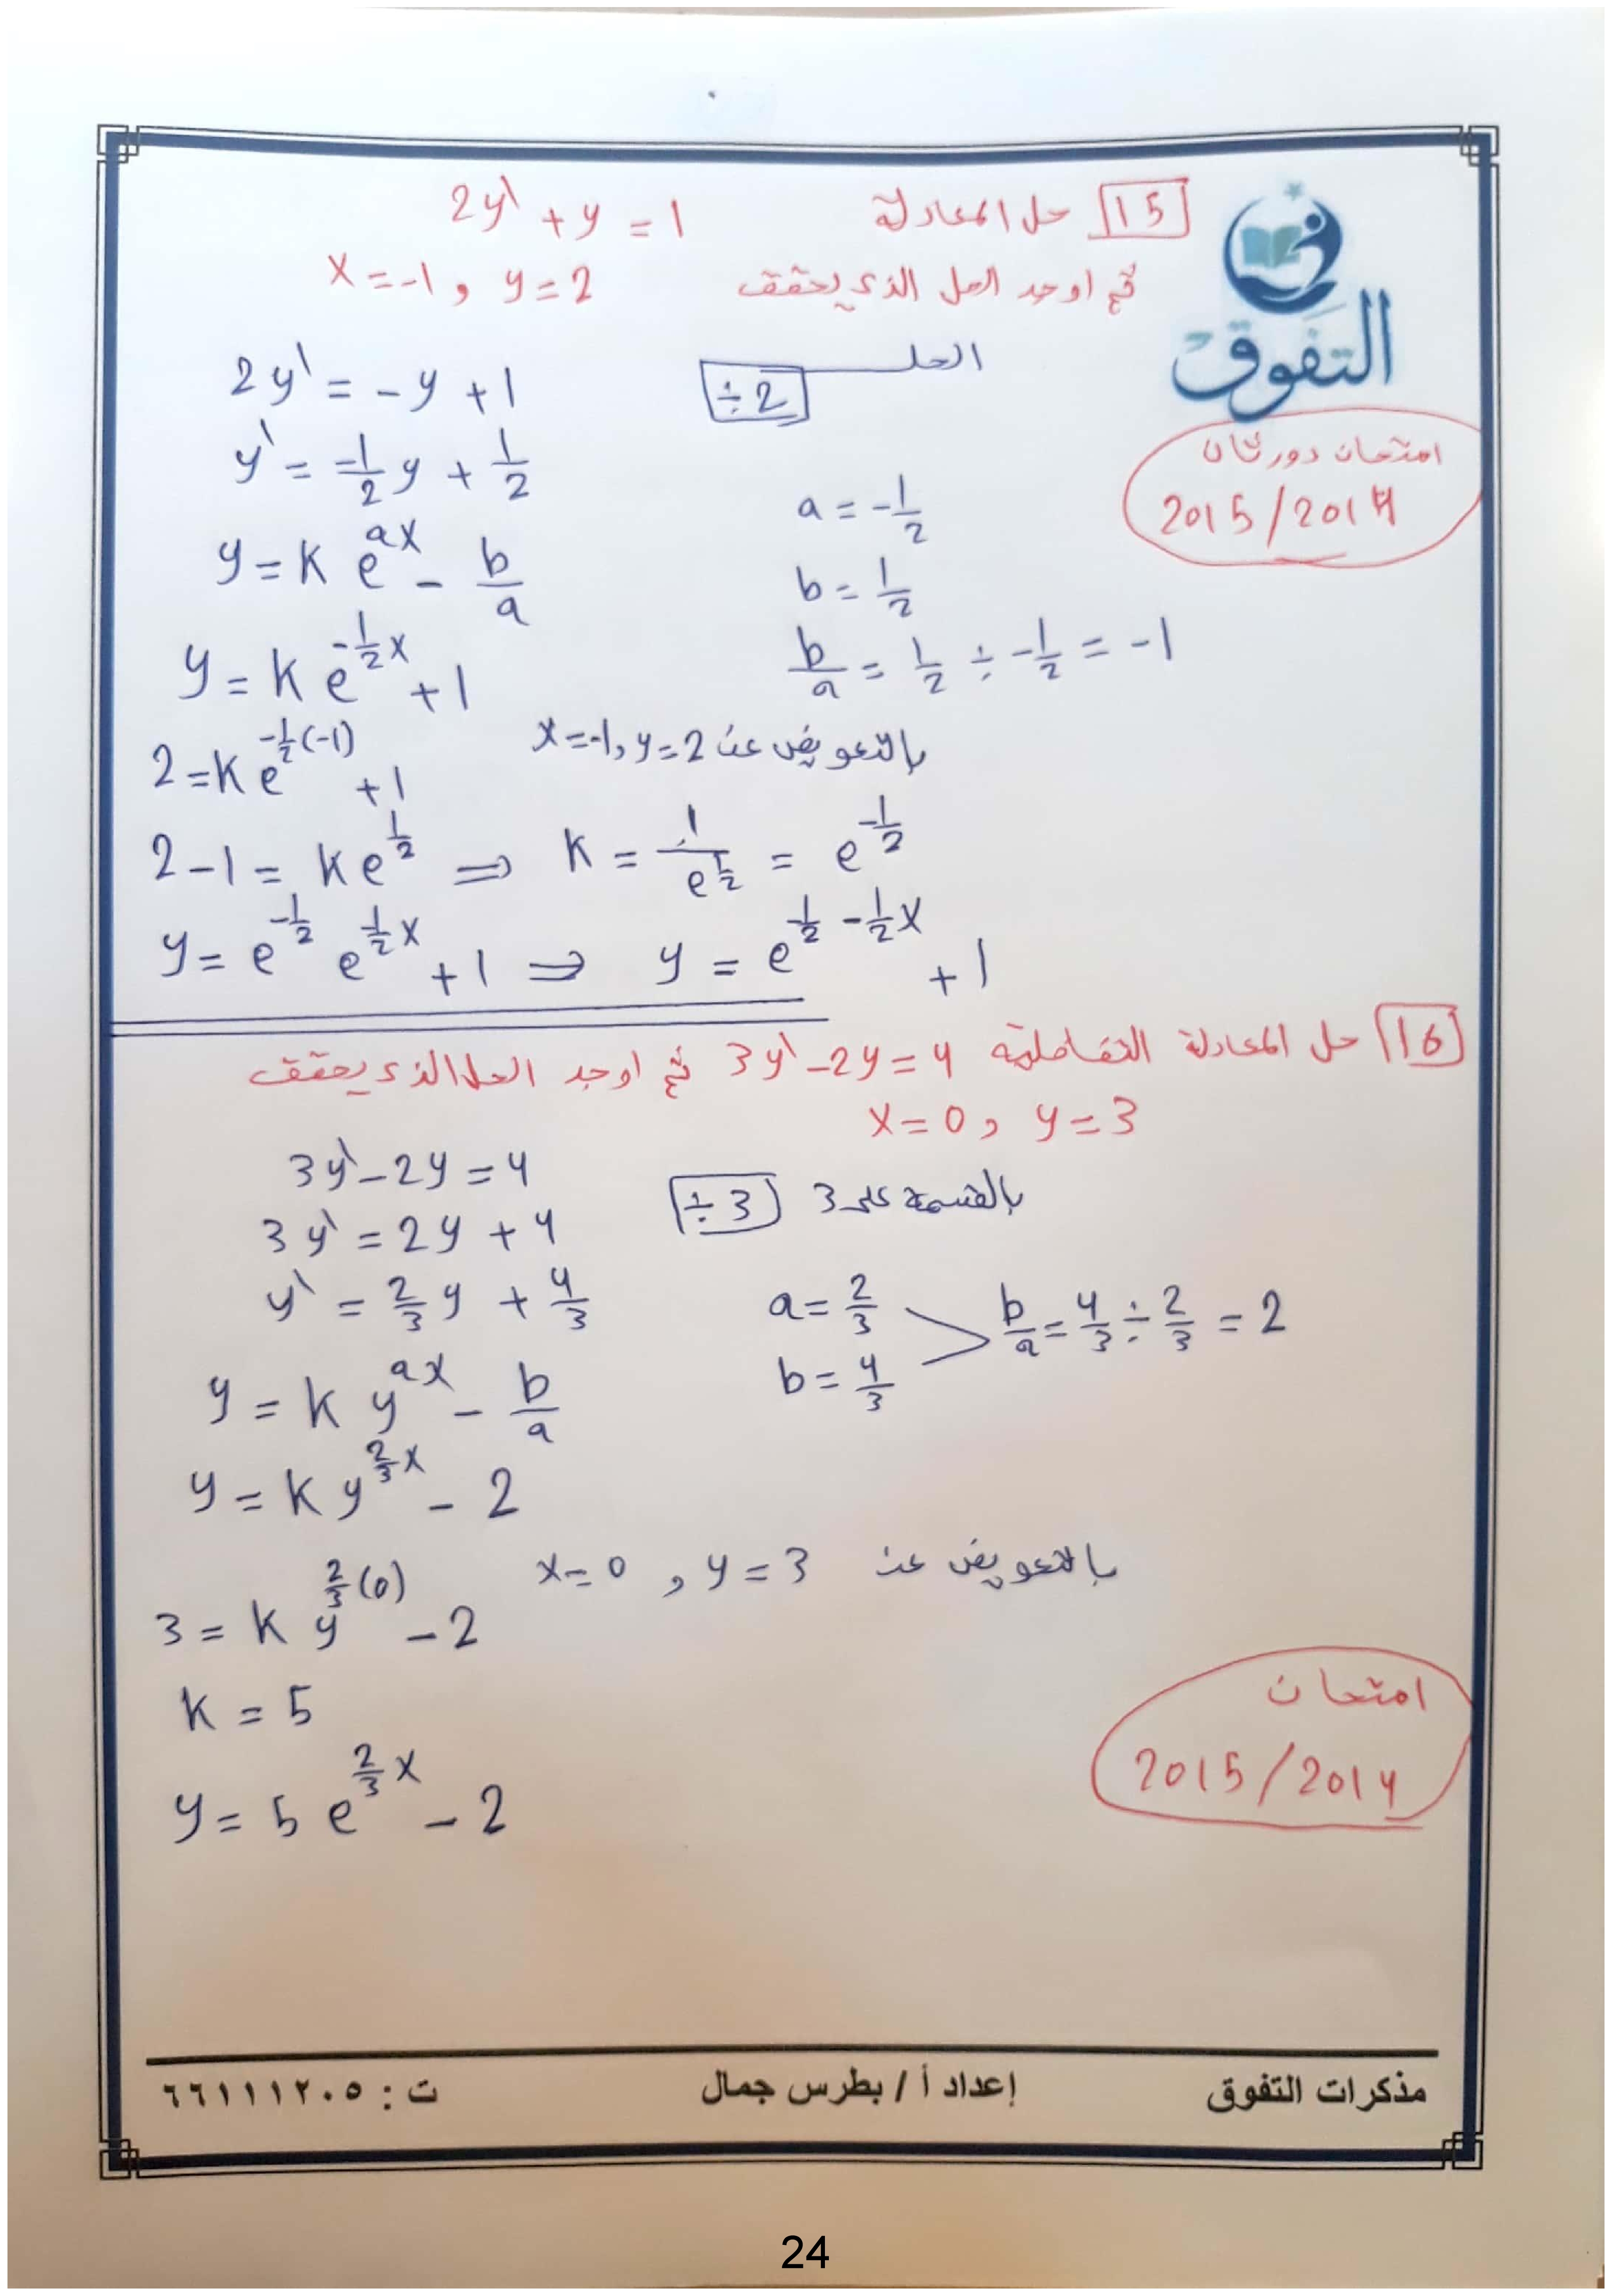 15 حل المعادلة 2y\ + y = 1
ثم اوجد الحل الذي يحقق x = -1 , y = 2
التفوق
الحل
2y\ = -y + 1 ÷2
امتحان دور ثان
2015/2014
y\ = -1/2 y + 1/2
a = -1/2
y = k e^ax - b/a
b = 1/2
y = k e^-1/2x + 1
b/a = 1/2 ÷ -1/2 = -1
2 = k e^-1/2(-1) + 1
بالتعويض عن x=-1, y=2
2-1 = k e^1/2 ⇒ k = 1/e^1/2 = e^-1/2
y = e^-1/2 e^1/2x + 1 ⇒ y = e^1/2 -1/2x + 1
16 حل المعادلة التفاضلية 3y\ - 2y = 4 ثم اوجد الحل الذي يحقق
x = 0 , y = 3
3y\ - 2y = 4
بالقسمة على 3 ÷3
3y\ = 2y + 4
y\ = 2/3 y + 4/3
a = 2/3
b = 4/3
b/a = 4/3 ÷ 2/3 = 2
y = k y^ax - b/a
y = k y^2/3x - 2
بالتعويض عن x=0 , y=3
3 = k y^2/3(0) - 2
k = 5
امتحان
2015/2014
y = 5 e^2/3x - 2
مذكرات التفوق إعداد أ / بطرس جمال ت : ٦٦١١١٢٠٥
24